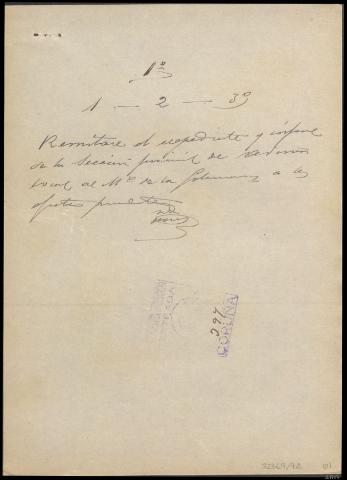 1º
1 — 2 — 39
Remítase el expediente y informe
de la Sección provincial de Admon
local al Mº de la Gobernacion a los
efectos
297
CORUÑA
22369/98